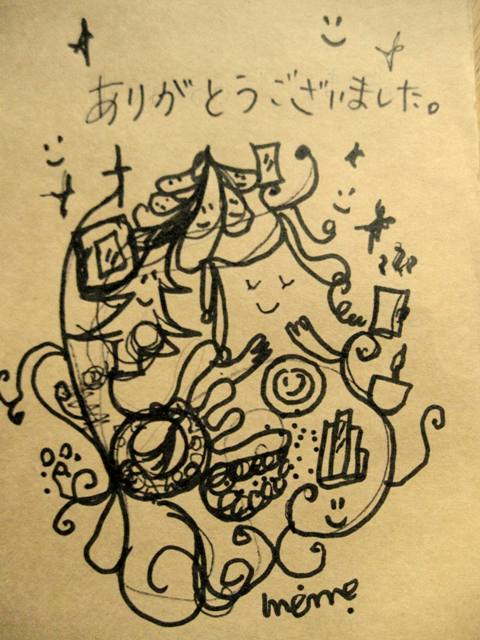 ありがとうございました。
meme